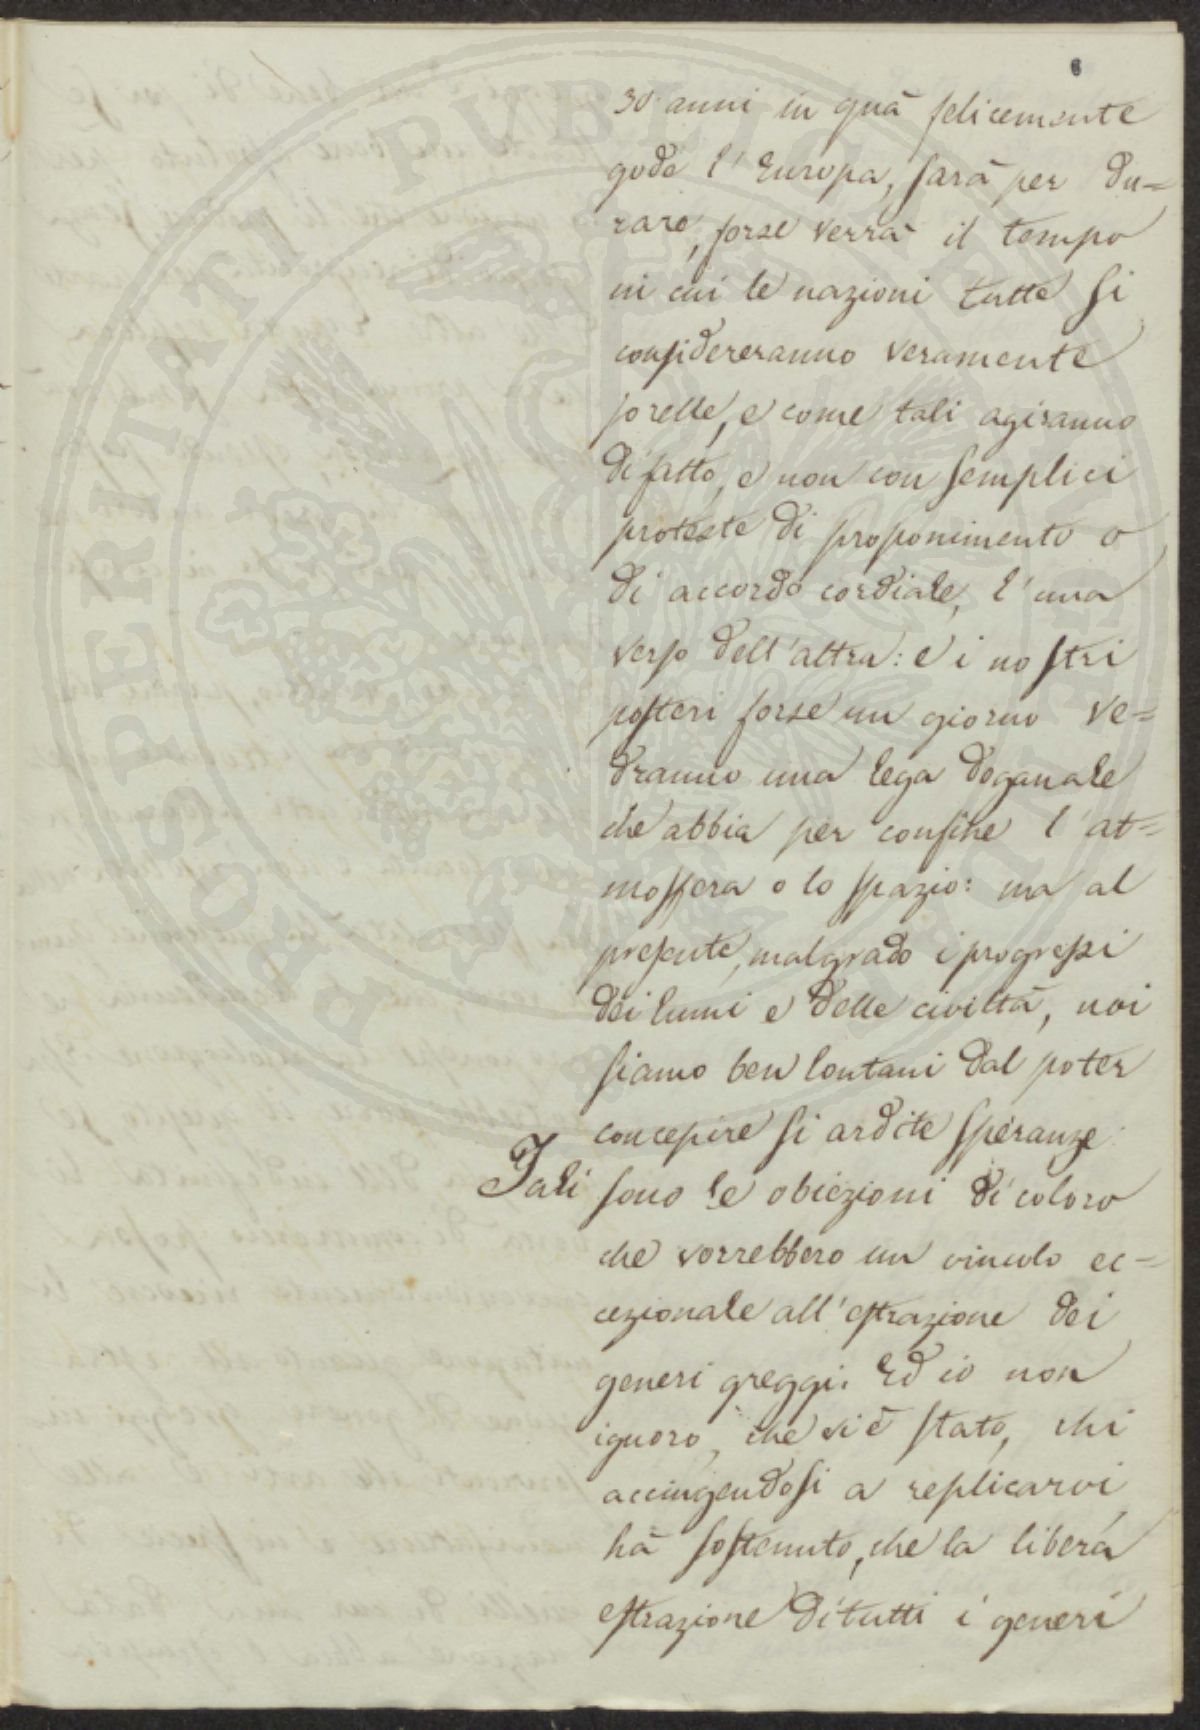 6
30 anni in quà felicemente
gode l'Europa, sarà per du=
rare, forse verrà il tempo
in cui le nazioni tutte si
considereranno veramente
sorelle, e come tali agiranno
di fatto, e non con semplici
proteste di proponimento o
di accordo cordiale, l'una
verso dell'altra: e i nostri
posteri forse un giorno ve=
dranno una lega doganale
che abbia per confine l'at=
mosfera o lo spazio: ma al
presente, malgrado i progressi
dei lumi e delle civiltà, noi
siamo ben lontani dal poter
concepire si ardite speranze.
Tali sono le obiezioni di coloro
che vorrebbero un vincolo ec=
cezionale all'estrazione dei
generi greggi. Ed io non
ignoro, che vi è stato, chi
accingendosi a replicarvi
hà sostenuto, che la libera
estrazione di tutti i generi
PROSPERITATI PUBLICAE AUGENDAE